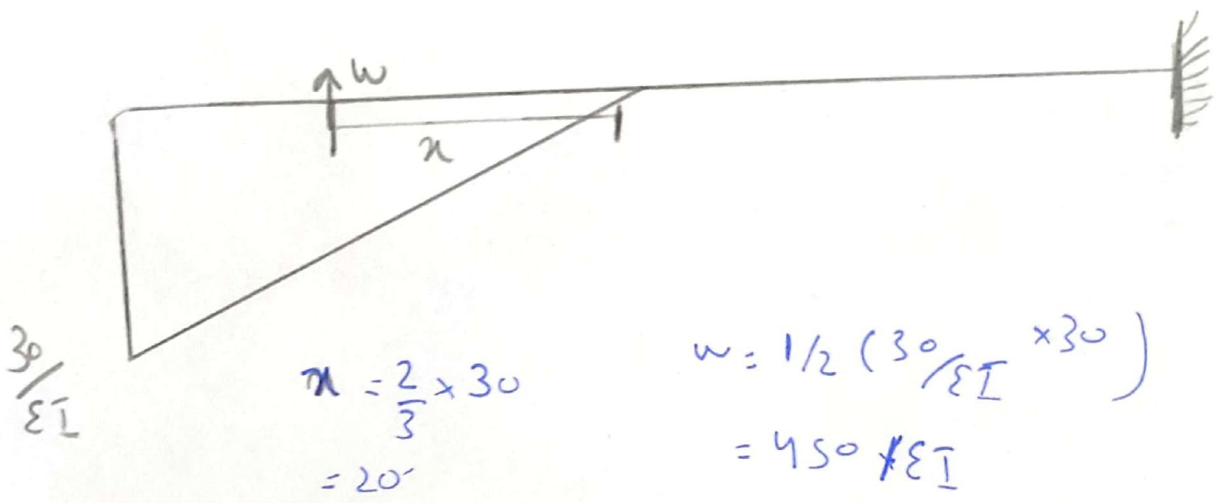 w
x
30/EI
x = 2/3 × 30
= 20
w = 1/2 (30/EI × 30)
= 450 /EI